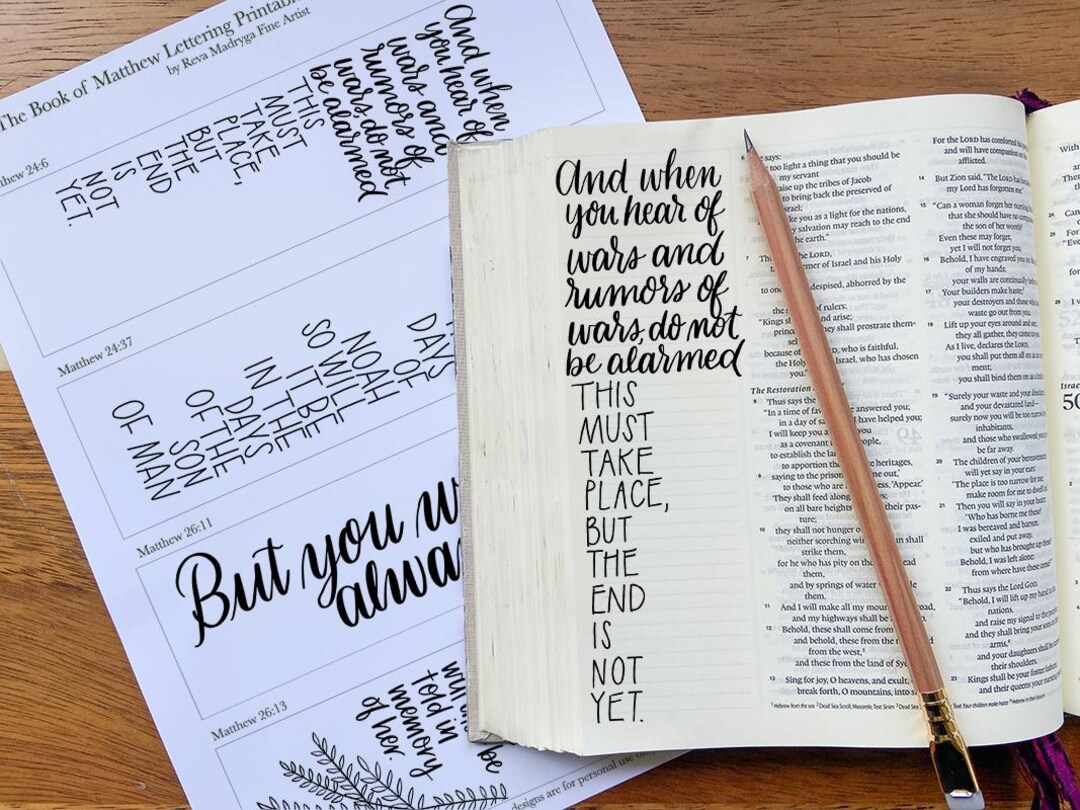 The Book of Matthew Lettering Printabl
by Reva Madryga Fine Artist
hew 24:6
And when
you hear of
wars and
rumors of
wars, do not
be alarmed
THIS
MUST
TAKE
PLACE,
BUT
THE
END
IS
NOT
YET.
Matthew 24:37
DAYS
OF
NOAH
SO WILL
IT BE
IN THE
DAYS
OF THE
SON
OF MAN
Matthew 26:11
But you w
alwa
Matthew 26:13
told in
memory
of her.
be
designs are for personal use o
And when
you hear of
wars and
rumors of
wars, do not
be alarmed
THIS
MUST
TAKE
PLACE,
BUT
THE
END
IS
NOT
YET.
says:
too light a thing that you should be
my servant
aise up the tribes of Jacob
to bring back the preserved of
srael;
ke you as a light for the nations,
y salvation may reach to the end
the earth."
7 Th the LORD,
emer of Israel and his Holy
to one espised, abhorred by the
the s of rulers:
"Kings s and arise;
princ hey shall prostrate them-
sel
because of D, who is faithful,
the Holy Israel, who has chosen
you."
The Restoration
8 Thus says the
"In a time of fav answered you;
in a day of sa I have helped you;
I will keep you a you
as a covenant t people,
to establish the la
to apportion th e heritages,
9 saying to the prison me out,'
to those who are ess, 'Appear.'
They shall feed along s;
on all bare heights their pas-
ture;
10 they shall not hunger o
neither scorching wi n shall
strike them,
for he who has pity on th ead
them,
and by springs of water de
them.
11 And I will make all my mou road,
and my highways shall be
12 Behold, these shall come from
and behold, these from the n
from the west,
and these from the land of Sy
13 Sing for joy, O heavens, and exult,
break forth, O mountains, into s
For the LORD has comforted
and will have compassion
afflicted.
14 But Zion said, "The LORD
my Lord has forgotten me."
15 "Can a woman forget her
that she should have no
the son of her womb?
Even these may forget,
yet I will not forget you.
16 Behold, I have engraved you
of my hands;
your walls are continually
17 Your builders make haste;
your destroyers and those
waste go out from
18 Lift up your eyes around and
they all gather, they come
As I live, declares the LORD,
you shall put them all on
ment;
you shall bind them on as
19 "Surely your waste and your
and your devastated land—
surely now you will be too narrow
inhabitants,
and those who swallowed you
be far away.
20 The children of your bereavement
will yet say in your ears:
'The place is too narrow for me;
make room for me to dwell
21 Then you will say in your heart:
'Who has borne me these?
I was bereaved and barren,
exiled and put away,
but who has brought up these?
Behold, I was left alone;
from where have these come?'"
22 Thus says the Lord GOD:
"Behold, I will lift up my hand
nations,
and raise my signal to the
and they shall bring your sons
arms,
and your daughters shall
their shoulders.
23 Kings shall be your foster fathers,
and their queens your nursing